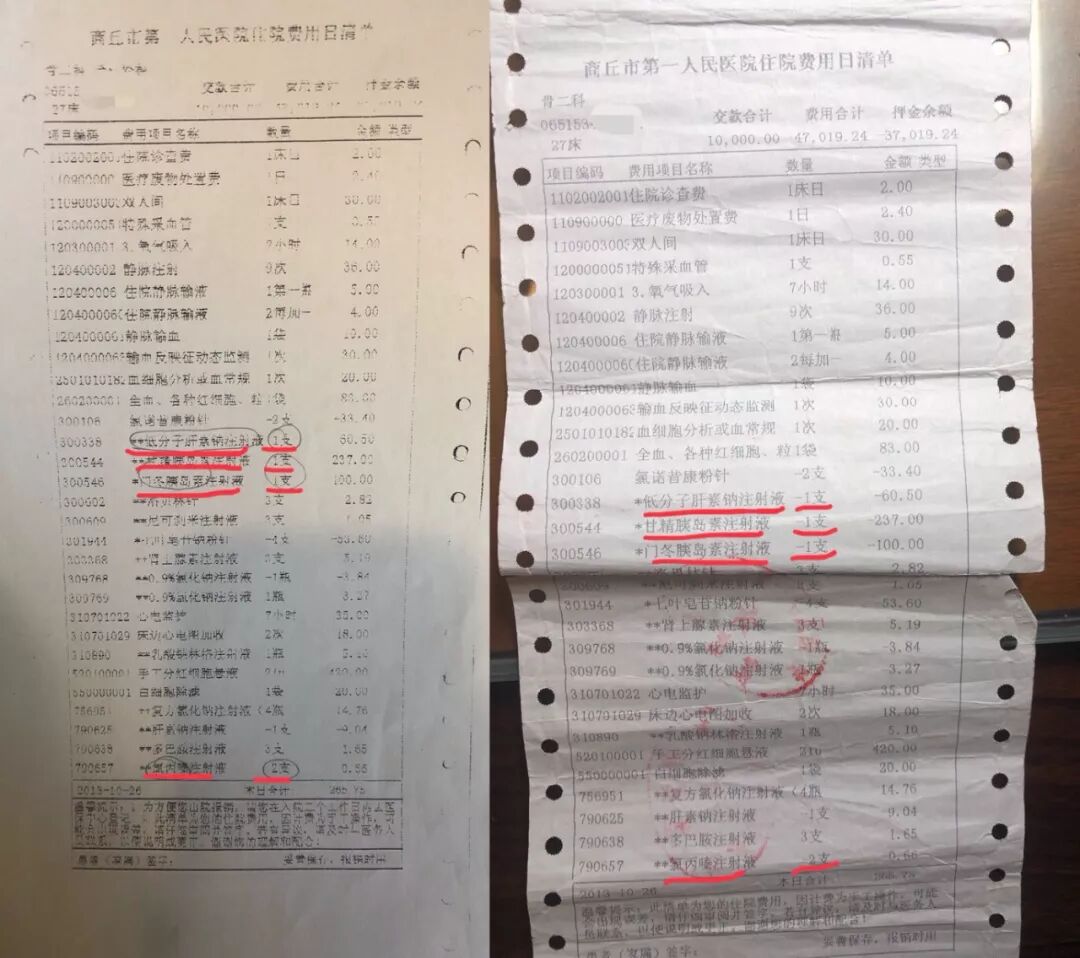 商丘市第 人民医院住院费用日清单
骨二科
065153
27床
交款合计 费用合计 押金余额
项目编码 费用项目名称 数量 金额 类型
1102002001住院诊查费 1床日 2.00
110900000 医疗废物处置费 1日 2.40
1109003003双人间 1床日 30.00
1200000051特殊采血管 支 0.55
120300001 3.氧气吸入 7小时 14.00
120400002 静脉注射 9次 36.00
120400006 住院静脉输液 1第一瓶 5.00
1204000060住院静脉输液 2每加一 4.00
1204000061静脉输血 1袋 10.00
1204000063输血反映征动态监测 1次 30.00
2501010182血细胞分析或血常规 1次 20.00
260200001 全血、各种红细胞、粒1袋 83.00
300106 氯诺昔康粉针 -2支 -33.40
300338 **低分子肝素钠注射液 1支 60.50
300544 **甘精胰岛素注射液 1支 237.00
300546 *门冬胰岛素注射液 1支 100.00
300602 3支 2.82
300609 **尼可刹米注射液 3支 1.05
301944 *七叶皂苷钠粉针 -4支 -53.60
303368 **肾上腺素注射液 3支 5.19
309768 **0.9%氯化钠注射液 -1瓶 -3.84
309769 **0.9%氯化钠注射液 1瓶 3.27
310701022 心电监护 7小时 35.00
310701029 床边心电图加收 2次 18.00
310890 **乳酸钠林格注射液 1瓶 5.10
520100001 手工分红细胞悬液 420.00
550000001 白细胞除滤 1袋 20.00
756951 **复方氯化钠注射液（4瓶 14.76
790625 **肝素钠注射液 -1支 -9.04
790638 **多巴胺注射液 3支 1.65
790657 **氯丙嗪注射液 2支 0.66
2013-10-26 本日合计
患者（家属）签字： 妥善保存，报销时用
商丘市第一人民医院住院费用日清单
骨二科
065153
27床
交款合计 费用合计 押金余额
10,000.00 47,019.24 -37,019.24
项目编码 费用项目名称 数量 金额 类型
1102002001住院诊查费 1床日 2.00
110900000 医疗废物处置费 1日 2.40
1109003003双人间 1床日 30.00
1200000051特殊采血管 1支 0.55
120300001 3.氧气吸入 7小时 14.00
120400002 静脉注射 9次 36.00
120400006 住院静脉输液 1第一瓶 5.00
1204000060住院静脉输液 2每加一 4.00
1204000061静脉输血 1袋 10.00
1204000063输血反映征动态监测 1次 30.00
2501010182血细胞分析或血常规 1次 20.00
260200001 全血、各种红细胞、粒1袋 83.00
300106 氯诺昔康粉针 -2支 -33.40
300338 *低分子肝素钠注射液 -1支 -60.50
300544 *甘精胰岛素注射液 -1支 -237.00
300546 *门冬胰岛素注射液 -1支 -100.00
3支 2.82
300609 **尼可刹米注射液 3支 1.05
301944 *七叶皂苷钠粉针 -4支 -53.60
303368 **肾上腺素注射液 3支 5.19
309768 **0.9%氯化钠注射液 -1瓶 -3.84
309769 **0.9%氯化钠注射液 1瓶 3.27
310701022 心电监护 7小时 35.00
310701029 床边心电图加收 2次 18.00
310890 **乳酸钠林格注射液 1瓶 5.10
520100001 手工分红细胞悬液 210 420.00
550000001 白细胞除滤 1袋 20.00
756951 **复方氯化钠注射液（4瓶 14.76
790625 **肝素钠注射液 -1支 -9.04
790638 **多巴胺注射液 3支 1.65
790657 **氯丙嗪注射液 -2支 0.66
2013-10-26 本日合计：
温馨提示：此清单为您的住院费用，因计费为手工操作，可能
妥善保存，报销时用
患者（家属）签字：